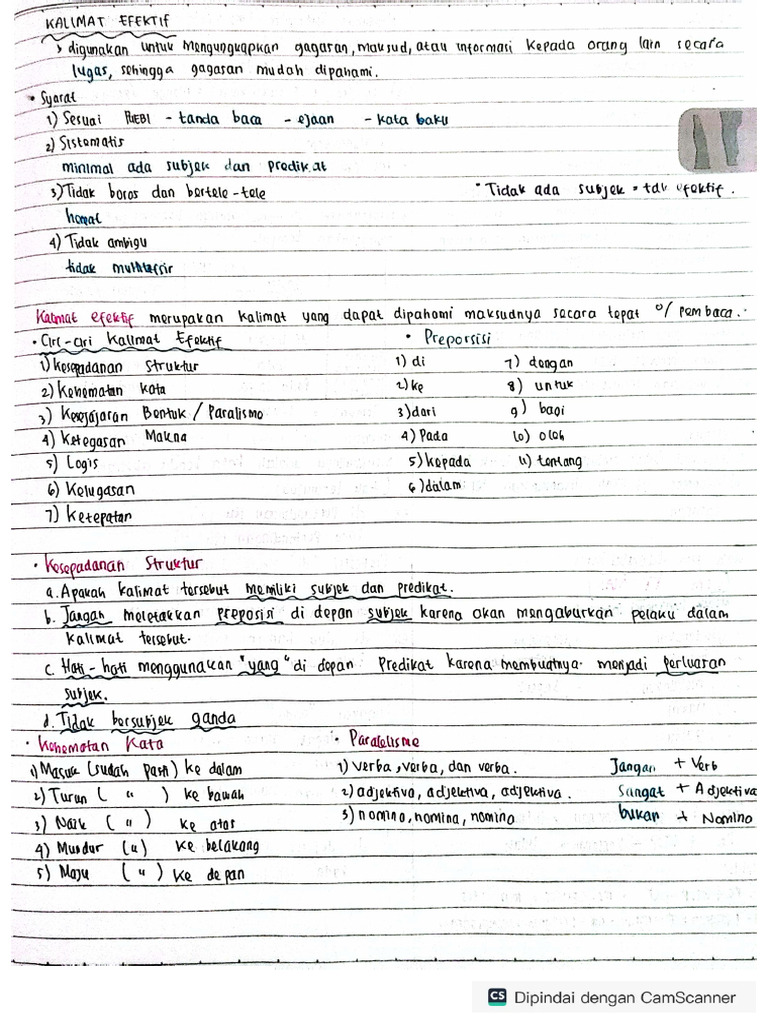 KALIMAT EFEKTIF
> digunakan untuk mengungkapkan gagasan, maksud, atau informasi kepada orang lain secara
lugas, sehingga gagasan mudah dipahami.
• Syarat
1) Sesuai PUEBI - tanda baca - ejaan - kata baku
2) Sistematis
minimal ada subjek dan predikat
3) Tidak boros dan bertele-tele
* Tidak ada subjek = tdk efektif.
hemat
4) Tidak ambigu
tidak multitafsir
Kalimat efektif merupakan kalimat yang dapat dipahami maksudnya secara tepat o/ pembaca.
• Ciri-ciri Kalimat Efektif
1) Kesepadanan struktur
2) Kehematan kata
3) Kesejajaran Bentuk / Paralismo
4) Ketegasan Makna
5) Logis
6) Kelugasan
7) Ketepatan
• Preporsisi
1) di
2) ke
3) dari
4) Pada
5) kepada
6) dalam
7) dengan
8) untuk
9) bagi
10) oleh
11) tentang
• Kesepadanan Struktur
a. Apakah kalimat tersebut memiliki subjek dan predikat.
b. Jangan meletakkan preposisi di depan subjek karena akan mengaburkan pelaku dalam
kalimat tersebut.
c. Hati-hati menggunakan "yang" di depan Predikat karena membuatnya menjadi perluasan
subjek.
d. Tidak bersubjek ganda
• Kehematan Kata
1) Masuk (sudah pasti) ke dalam
2) Turun ( " ) ke bawah
3) Naik ( " ) ke atas
4) Mundur ( " ) ke belakang
5) Maju ( " ) ke depan
• Paralelisme
1) verba, verba, dan verba.
2) adjektiva, adjektiva, adjektiva.
3) nomina, nomina, nomina
Jangan + Verb
Sangat + Adjektiva
bukan + Nomina
CS Dipindai dengan CamScanner